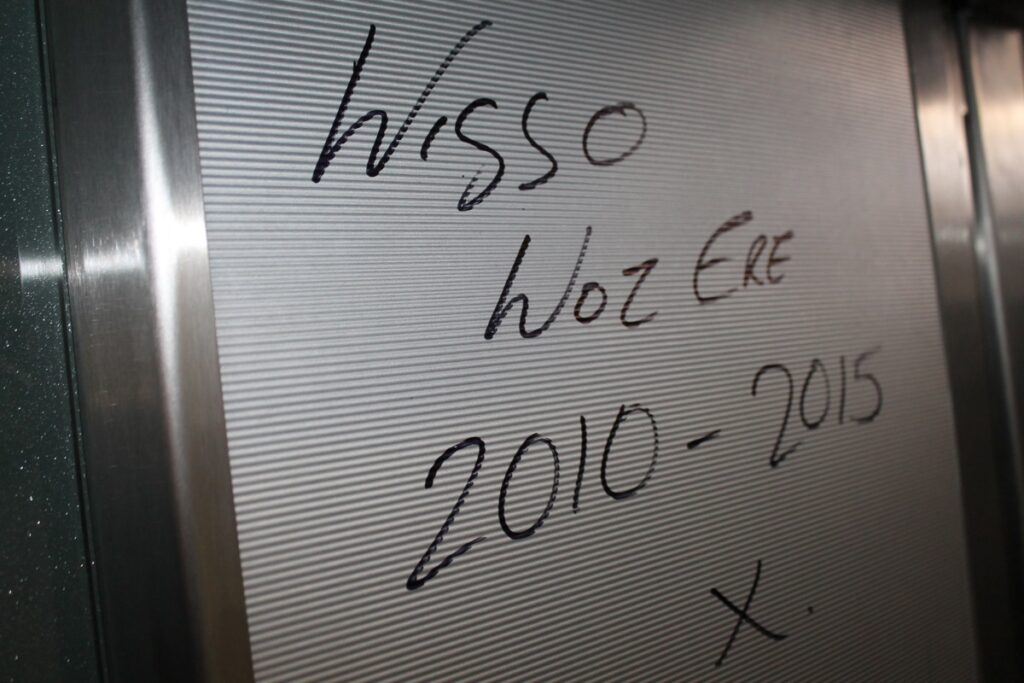 Wisso
Woz Ere
2010 - 2015
x.